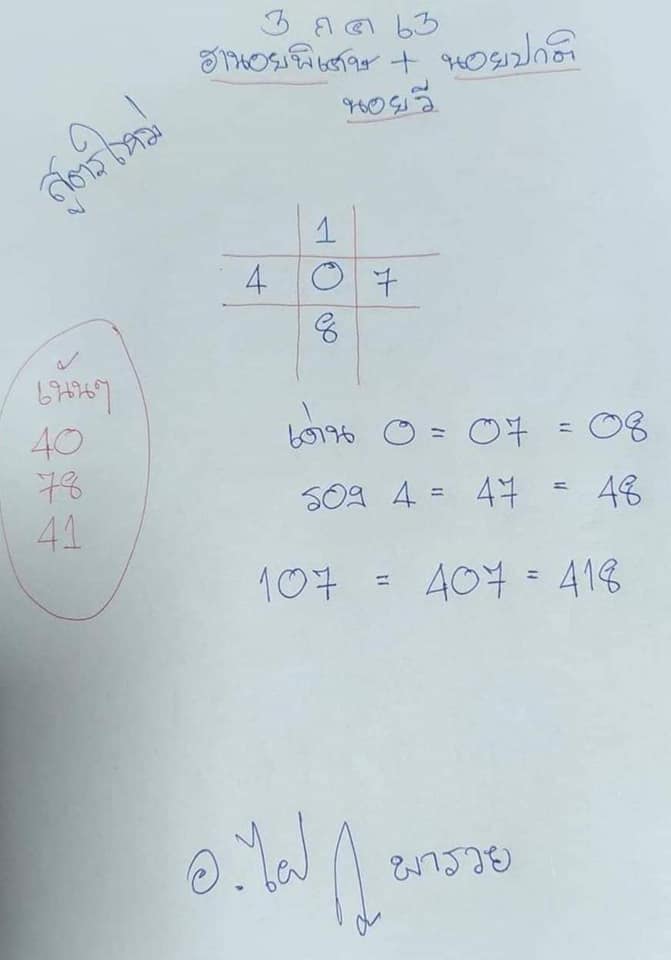 3 กค 63
ฮานอยพิเศษ + นอยปกติ
นอยวี
สูตรใหม่
1
4 0 7
8
เน้นๆ
40
78
41
เด่น 0 = 07 = 08
รอง 4 = 47 = 48
107 = 407 = 418
อ.ไฝ พารวย